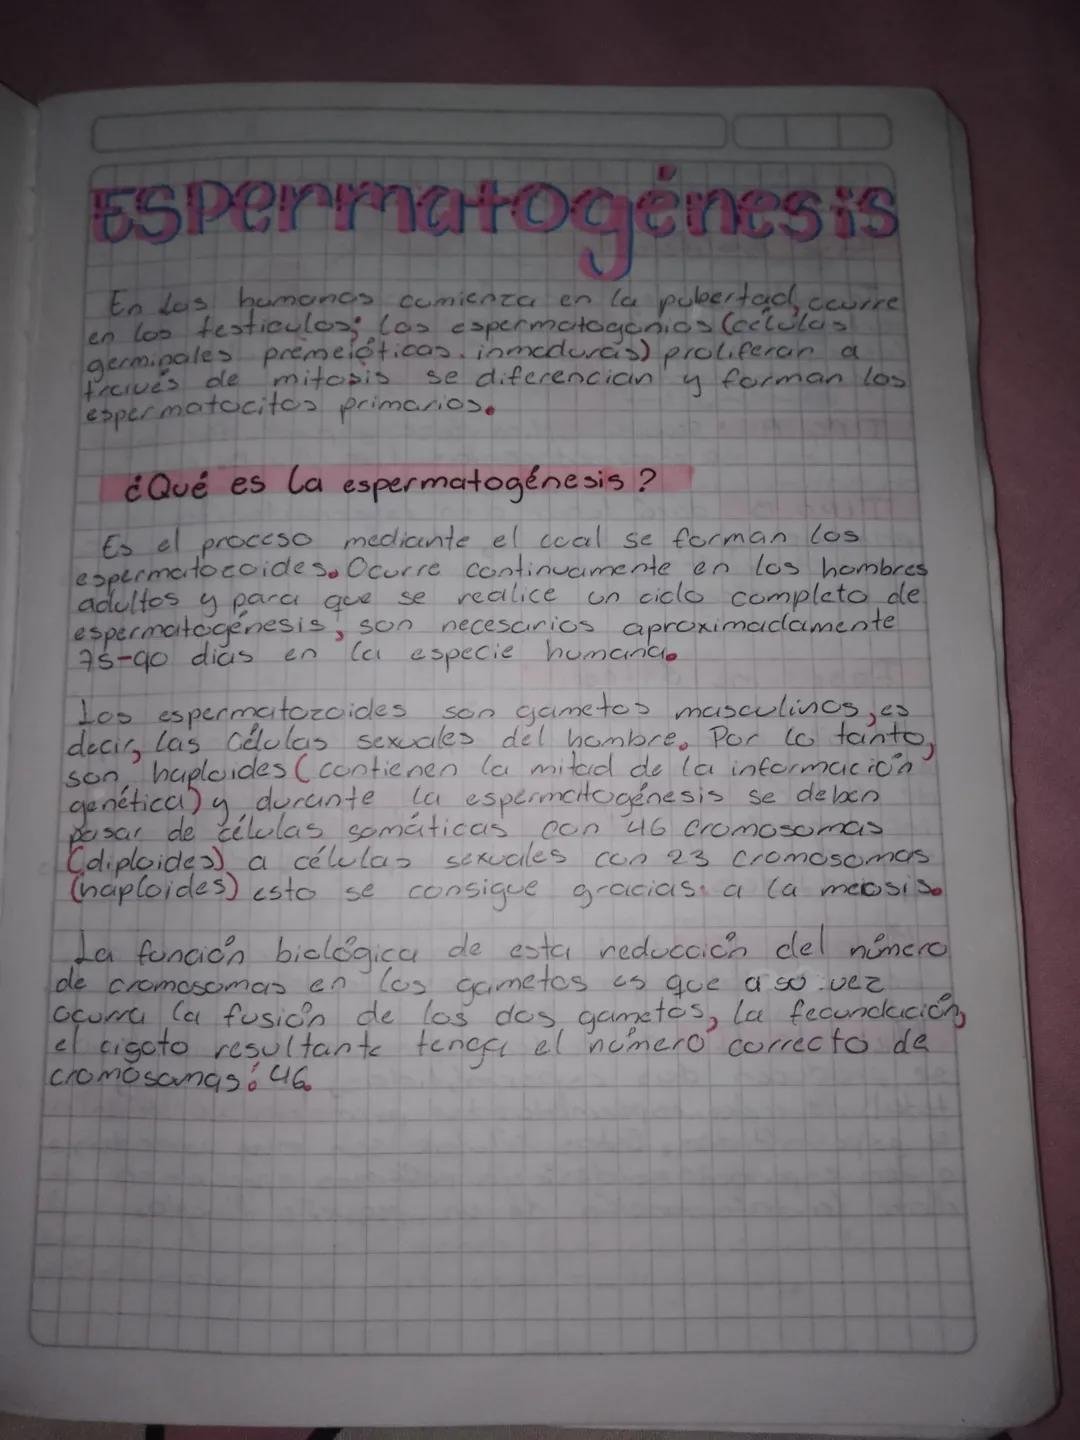 ESPermatogénesis
En los humanos comienza en la pubertad, ocurre
en los testiculos; las espermatogonias (células
germinales premeióticas inmaduras) proliferan a
través de mitosis se diferencian y forman los
espermatocitos primarios.
¿Qué es la espermatogénesis?
Es el proceso mediante el cual se forman los
espermatozoides. Ocurre continuamente en los hombres
adultos y para que se realice un ciclo completo de
espermatogénesis, son necesarios aproximadamente
75-90 dias en la especie humana.
Los espermatozoides son gametos masculinos, es
decir, las Células sexuales del hombre. Por lo tanto,
son haploides (contienen la mitad de la información
genética) y durante la espermatogénesis se deben
pasar de células somáticas con 46 cromosomas
(diploides) a células sexuales con 23 cromosomas
(haploides) esto se consigue gracias a la meiosis.
La función biológica de esta reducción del número
de cromosomas en los gametos es que a su vez
ocurra la fusión de los dos gametos, la fecundación,
el cigoto resultante tenga el número correcto de
cromosomas: 46.